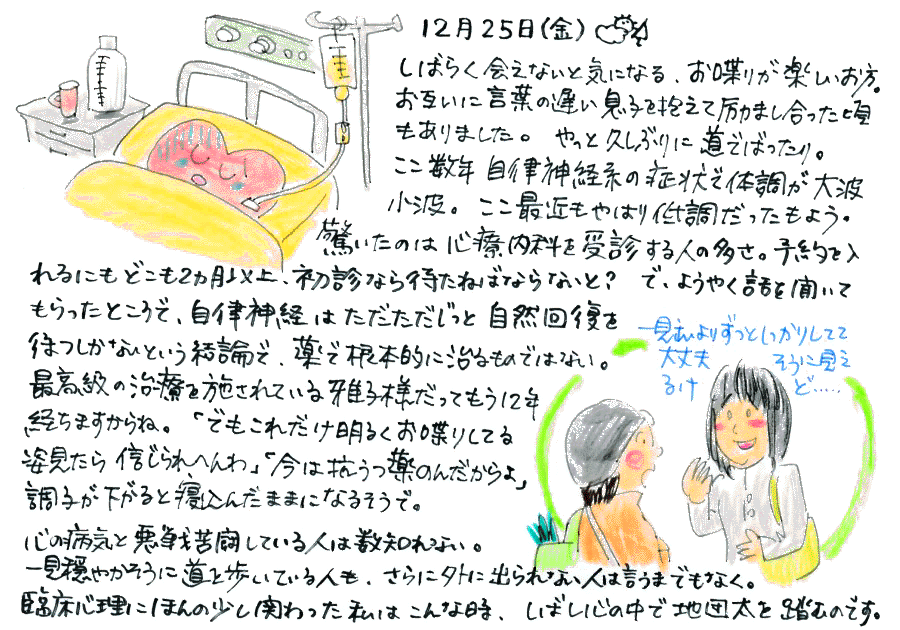 12月25日(金)
しばらく会えないと気になる、お喋りが楽しいお方。
お互いに言葉の遅い息子を抱えて励まし合った頃
もありました。やっと久しぶりに道でばったり。
ここ数年自律神経系の症状で体調が大波
小波。ここ最近もやはり低調だったもよう。
驚いたのは心療内科を受診する人の多さ。予約を入
れるにもどこも2ヵ月以上、初診なら待たねばならないと? で、ようやく話を聞いて
もらったところで、自律神経はただただじっと自然回復を
待つしかないという結論で、薬で根本的に治るものではない。
最高級の治療を施されている雅子様だってもう12年
経ちますからね。「でもこれだけ明るくお喋りしてる
姿見たら信じられへんわ」「今は抗うつ薬のんだからよ」
調子が下がると寝込んだままになるそうで。
心の病気と悪戦苦闘している人は数知れない。
一見穏やかそうに道を歩いている人も、さらに外に出られない人は言うまでもなく。
臨床心理にほんの少し関わった私はこんな時、しばし心の中で地団太を踏むのです。
ずっとしっかりしてて
大丈夫 そうに見え
るけ ど……